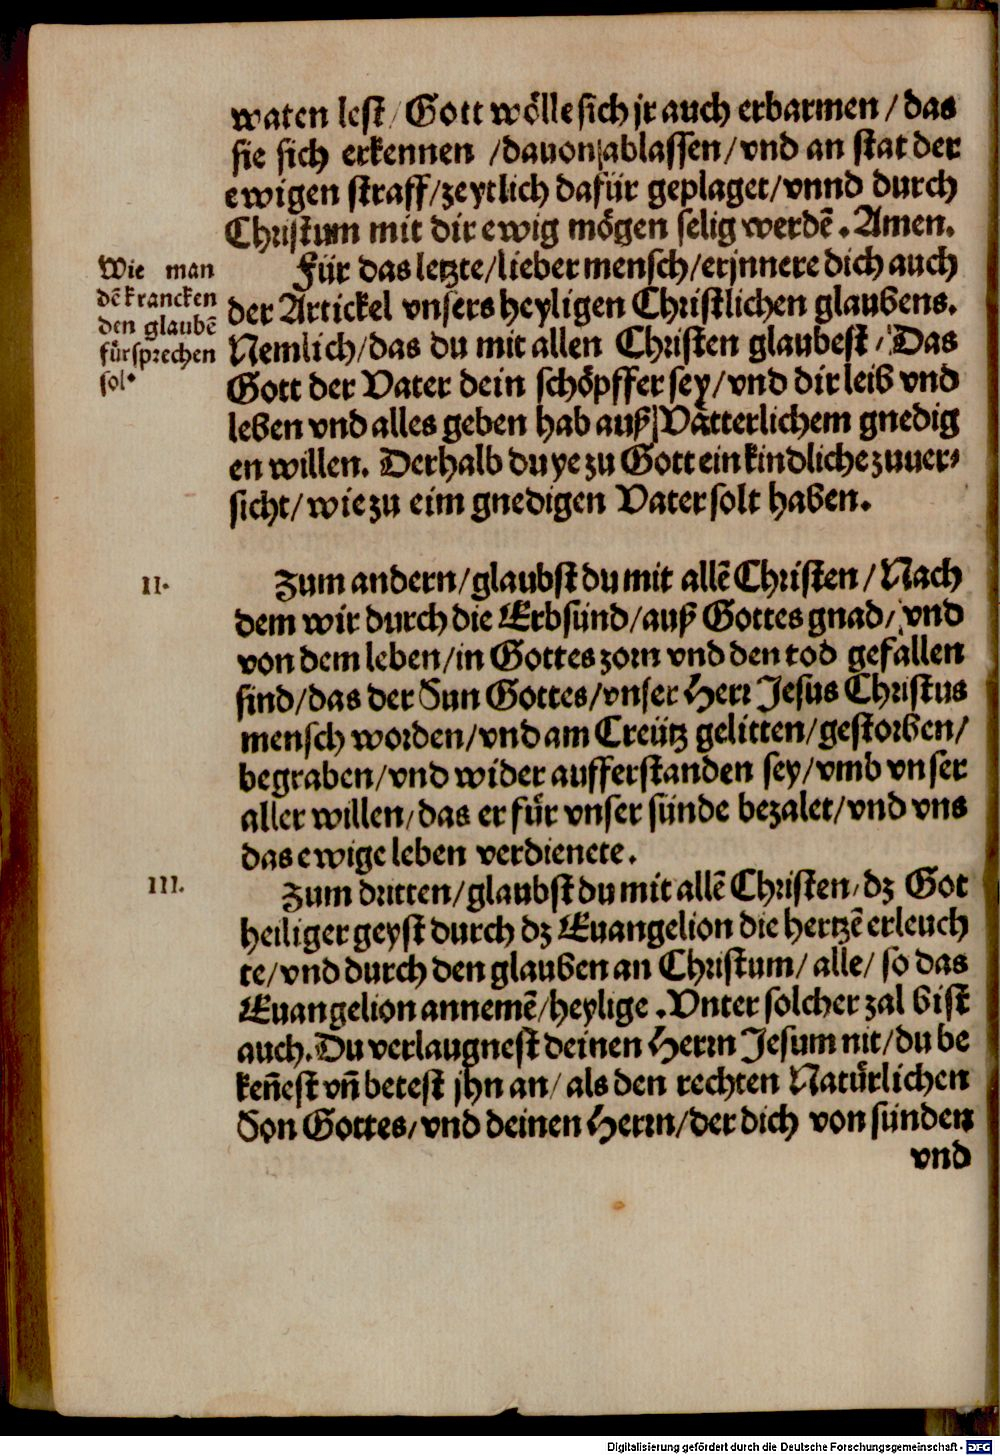 waten lest / Gott wölle sich jr auch erbarmen / das
sie sich erkennen / dauon ablassen / vnd an stat der
ewigen straff / zeytlich dafür geplaget / vnnd durch
Christum mit dir ewig mögen selig werdē. Amen.
Wie man
dē krancken
den glaubē
fürsprechen
sol.
Für das letzte / lieber mensch / erjnnere dich auch
der Artickel vnsers heyligen Christlichen glaubens.
Nemlich / das du mit allen Christen glaubest / Das
Gott der Vater dein schöpffer sey / vnd dir leib vnd
leben vnd alles geben hab auß Vätterlichem gnedig
en willen. Derhalb du ye zu Gott ein kindliche zuuer⸗
sicht / wie zu eim gnedigen Vater solt haben.
II.
Zum andern / glaubst du mit allē Christen / Nach
dem wir durch die Erbsünd / auß Gottes gnad / vnd
von dem leben / in Gottes zorn vnd den tod gefallen
sind / das der Sun Gottes / vnser Herr Jesus Christus
mensch worden / vnd am Creütz gelitten / gestorben /
begraben / vnd wider aufferstanden sey / vmb vnser
aller willen / das er für vnser sünde bezalet / vnd vns
das ewige leben verdienete.
III.
Zum dritten / glaubst du mit allē Christen / dz Got
heiliger geyst durch dz Euangelion die hertzē erleuch
te / vnd durch den glauben an Christum / alle / so das
Euangelion annemē / heylige. Vnter solcher zal bist
auch. Du verlaugnest deinen Herrn Jesum nit / du be
keñest vñ betest jhn an / als den rechten Natürlichen
Son Gottes / vnd deinen Herrn / der dich von sünden
vnd
Digitalisierung gefördert durch die Deutsche Forschungsgemeinschaft - DFG